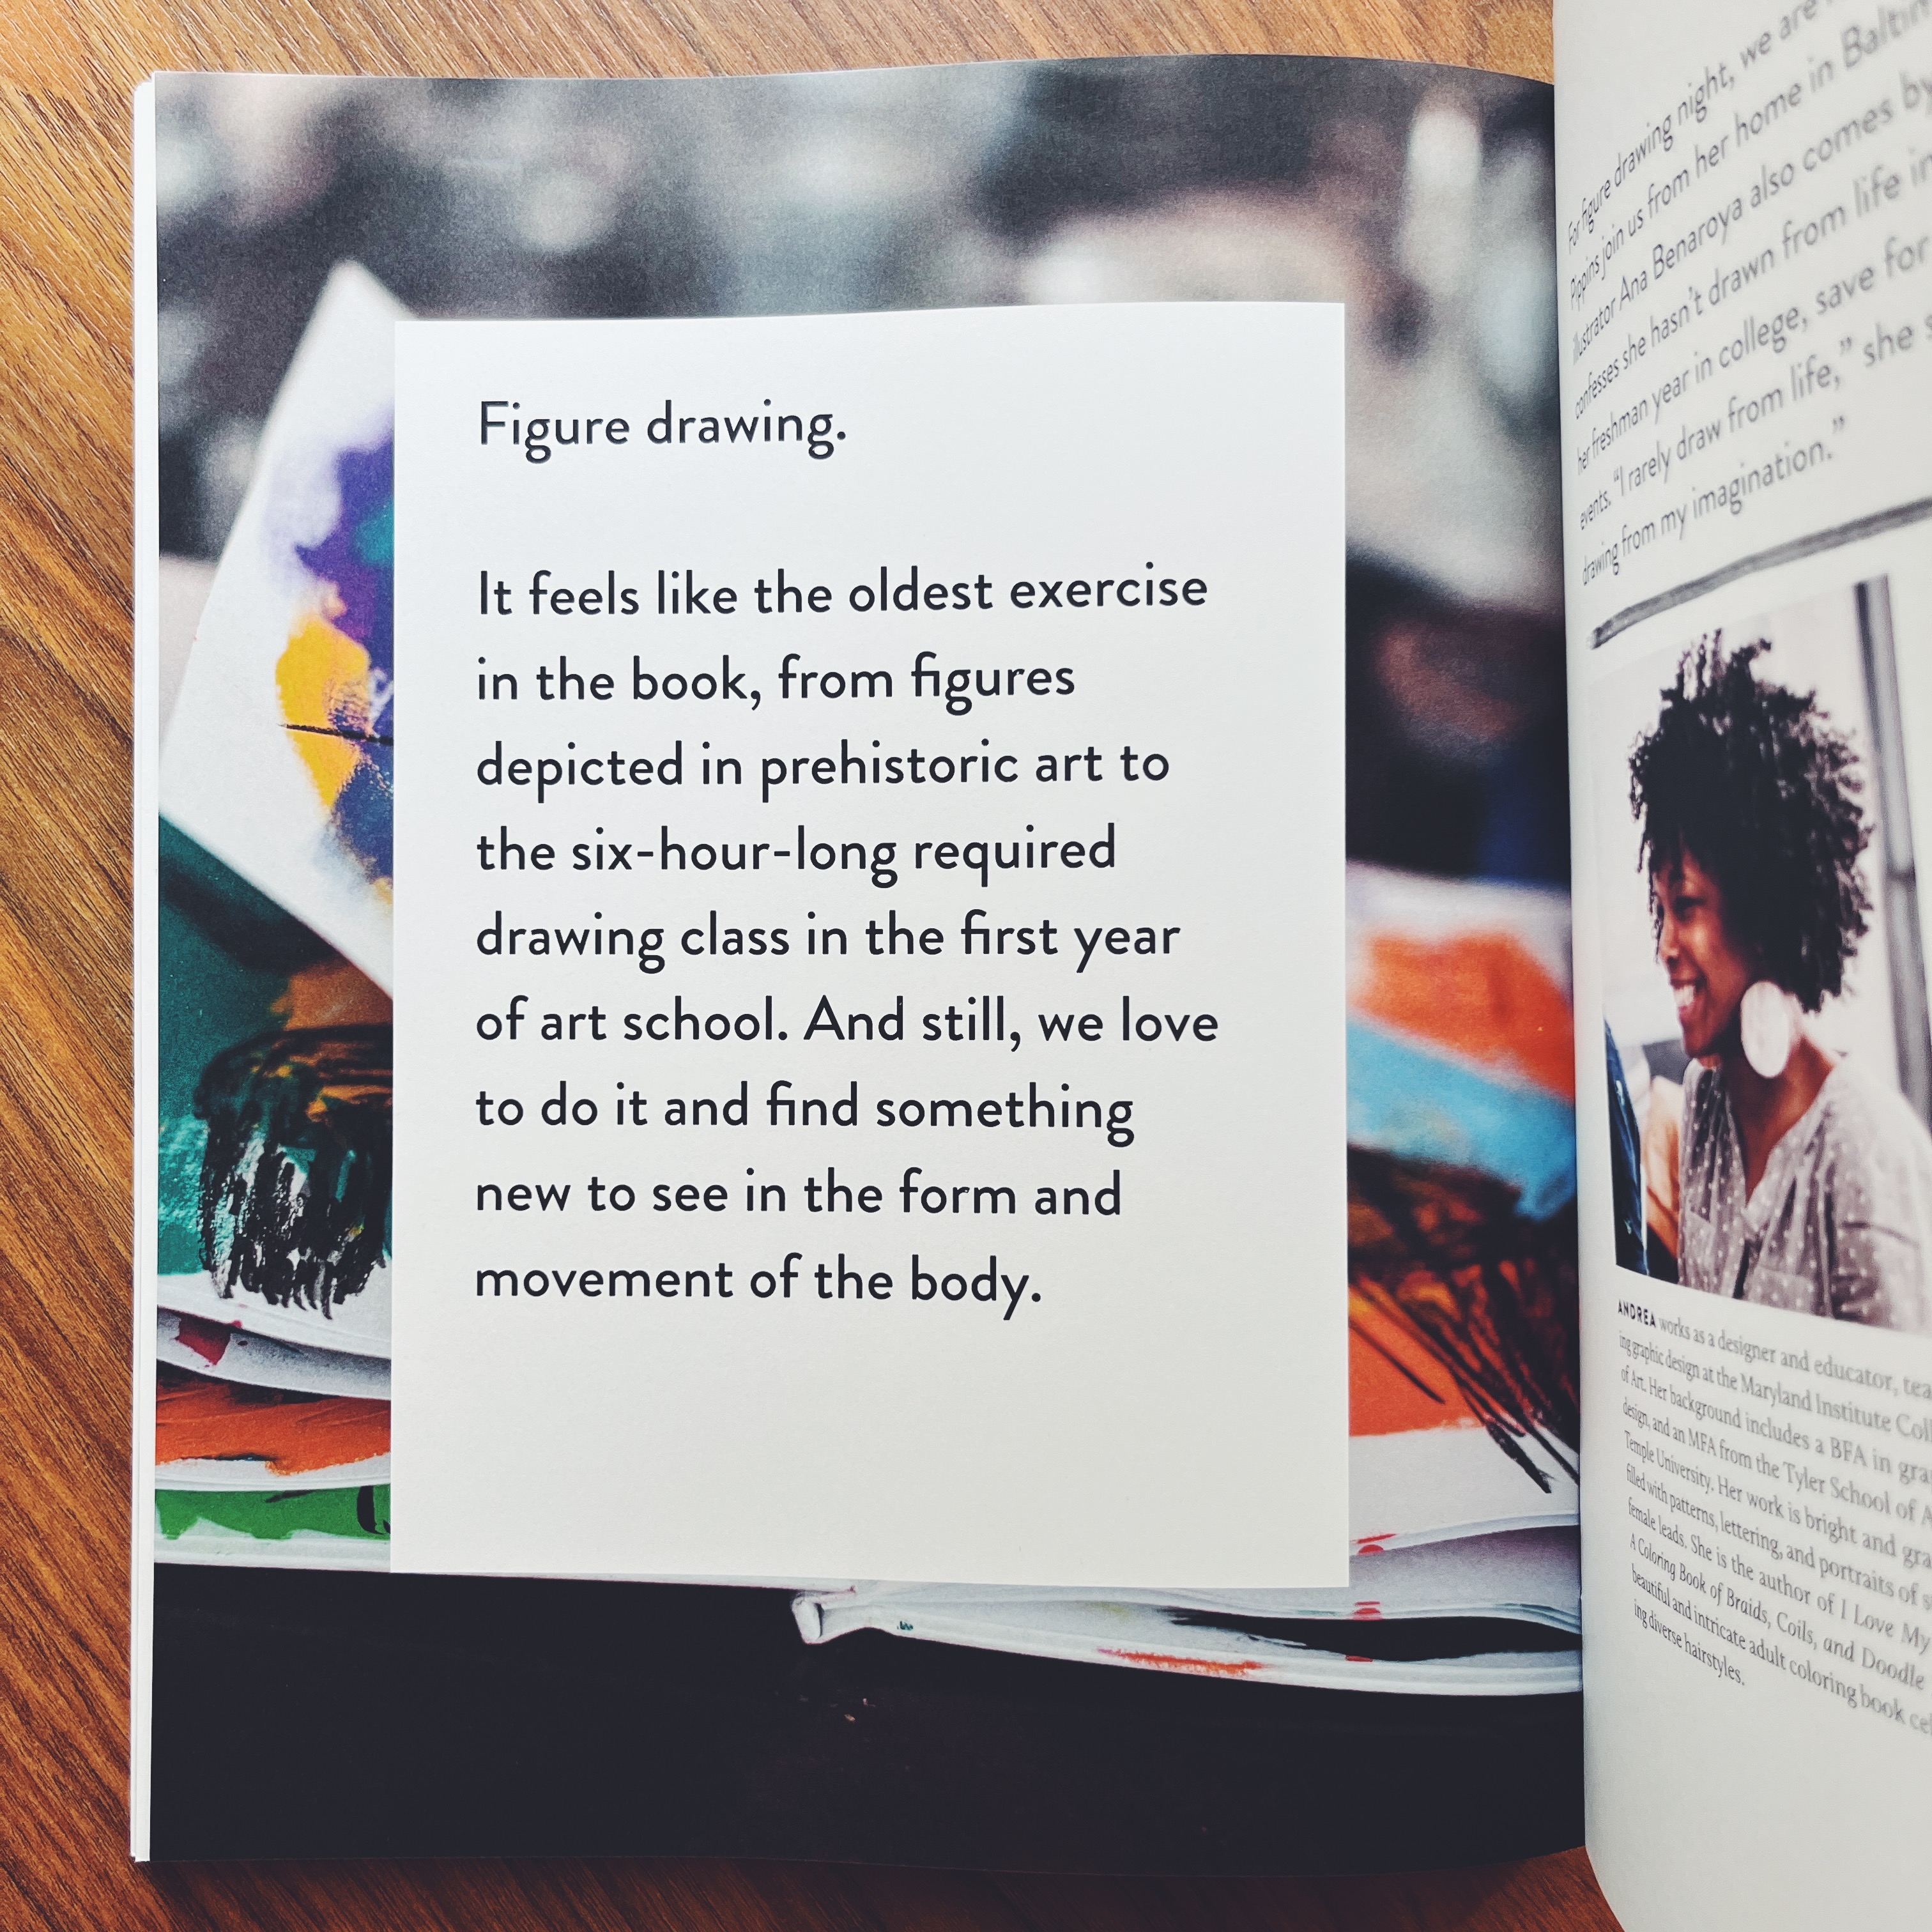 Figure drawing.
It feels like the oldest exercise
in the book, from figures
depicted in prehistoric art to
the six-hour-long required
drawing class in the first year
of art school. And still, we love
to do it and find something
new to see in the form and
movement of the body.
For figure drawing night, we are
Pippins join us from her home in
illustrator Ana Benaroya also comes by
confesses she hasn't drawn from life in
her freshman year in college, save for
events. “I rarely draw from life,” she
drawing from my imagination.”
ANDREA works as a designer and educator,
ing graphic design at the Maryland Institute
of Art. Her background includes a BFA in
design, and an MFA from the Tyler School of
Temple University. Her work is bright and
filled with patterns, lettering, and portraits of
female leads. She is the author of I Love My
A Coloring Book of Braids, Coils, and Doodle
beautiful and intricate adult coloring book
ing diverse hairstyles.